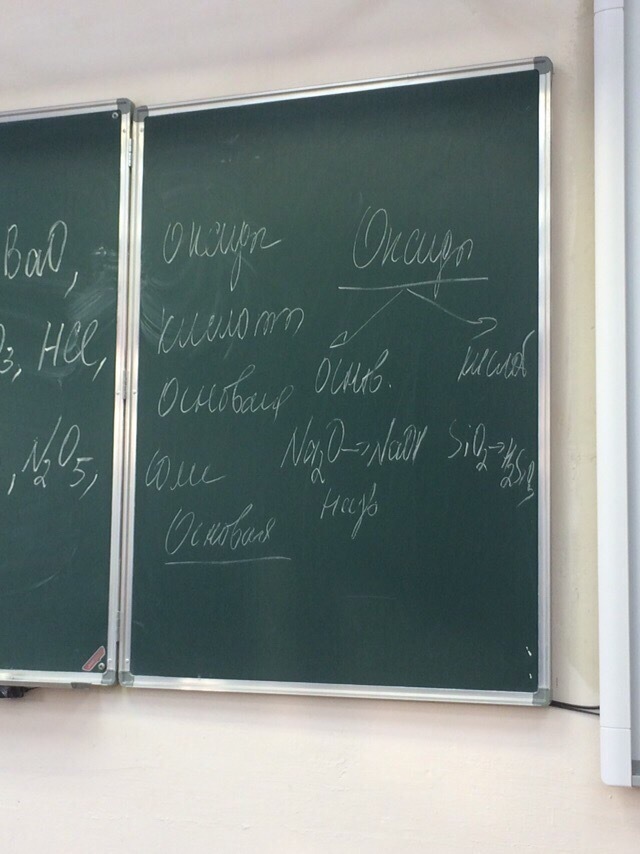 BaO,
O3, HCl,
, N2O5,
оксиды
кислоты
Основания
соли
Основания
Оксиды
Основ. кислот
Na2O→NaOH SiO2→H2SiO3